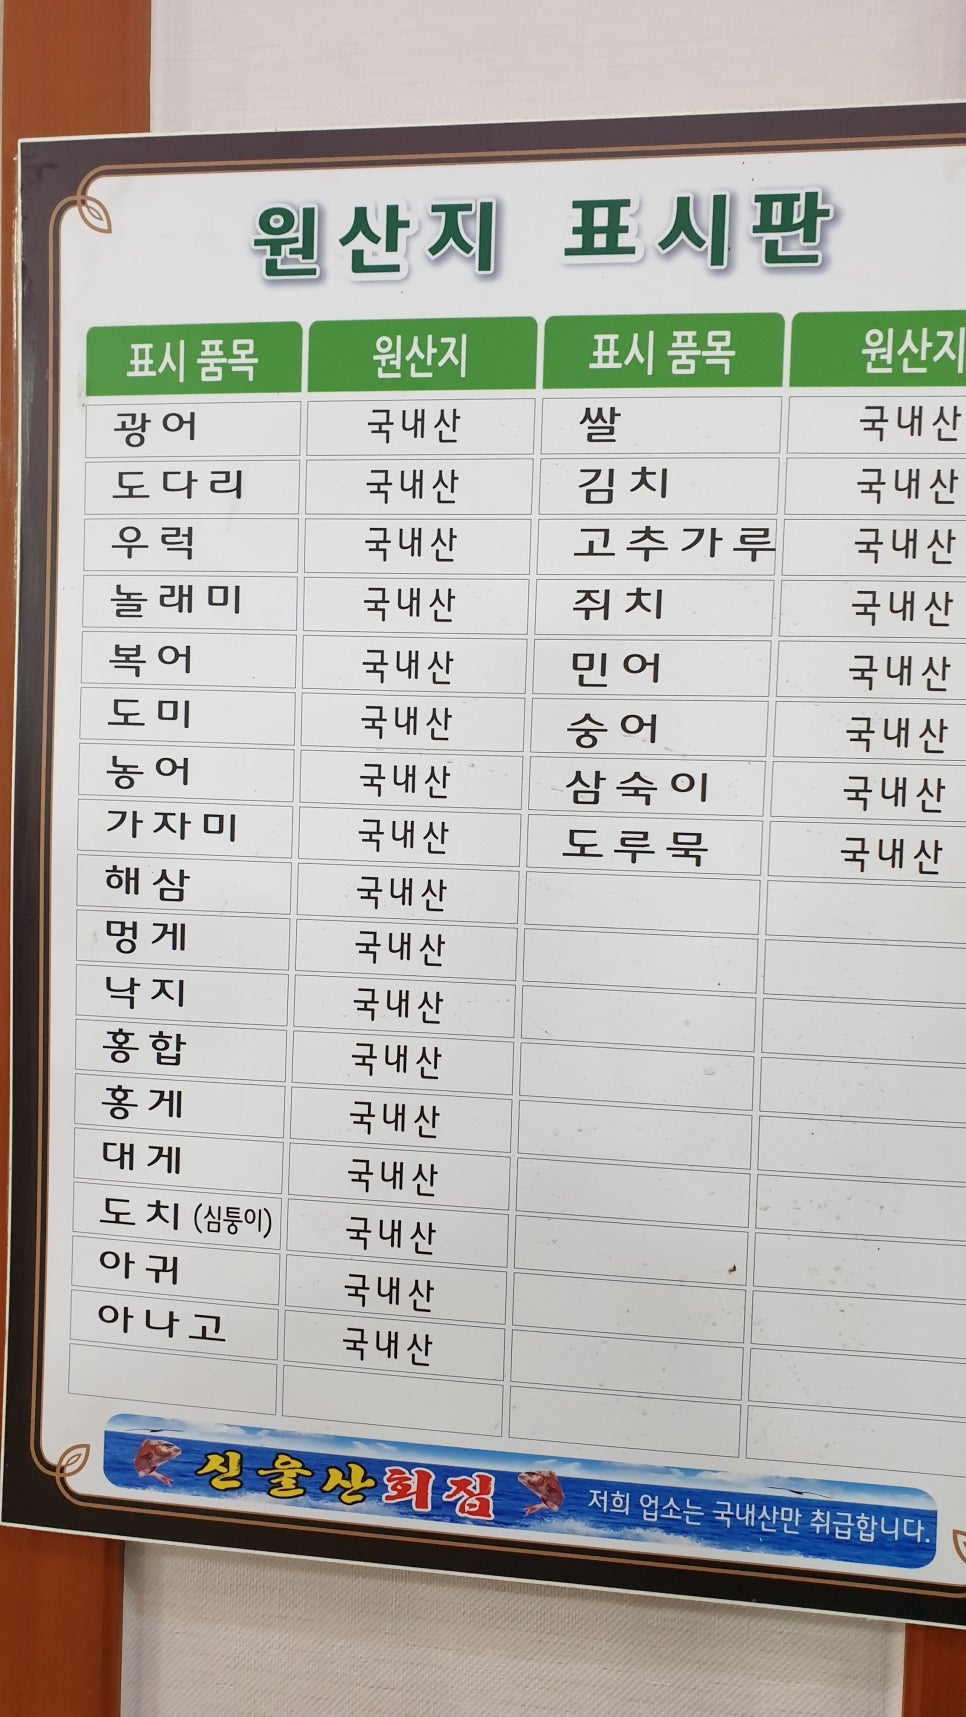 원산지 표시판
표시 품목 원산지 표시 품목 원산지
광어 국내산 쌀 국내산
도다리 국내산 김치 국내산
우럭 국내산 고추가루 국내산
놀래미 국내산 쥐치 국내산
복어 국내산 민어 국내산
도미 국내산 숭어 국내산
농어 국내산 삼숙이 국내산
가자미 국내산 도루묵 국내산
해삼 국내산
멍게 국내산
낙지 국내산
홍합 국내산
홍게 국내산
대게 국내산
도치 (심퉁이) 국내산
아귀 국내산
아나고 국내산
신울산회집 저희 업소는 국내산만 취급합니다.